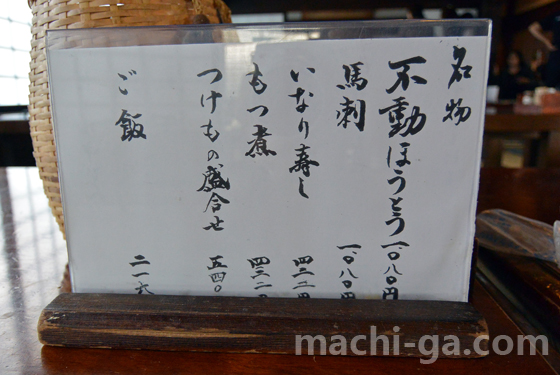 名物
不動ほうとう 一、〇八〇円
馬刺 一、〇八〇円
いなり寿し 四三二円
もつ煮 四三二
つけもの盛合せ 五四〇
ご飯 二一六
machi-ga.com